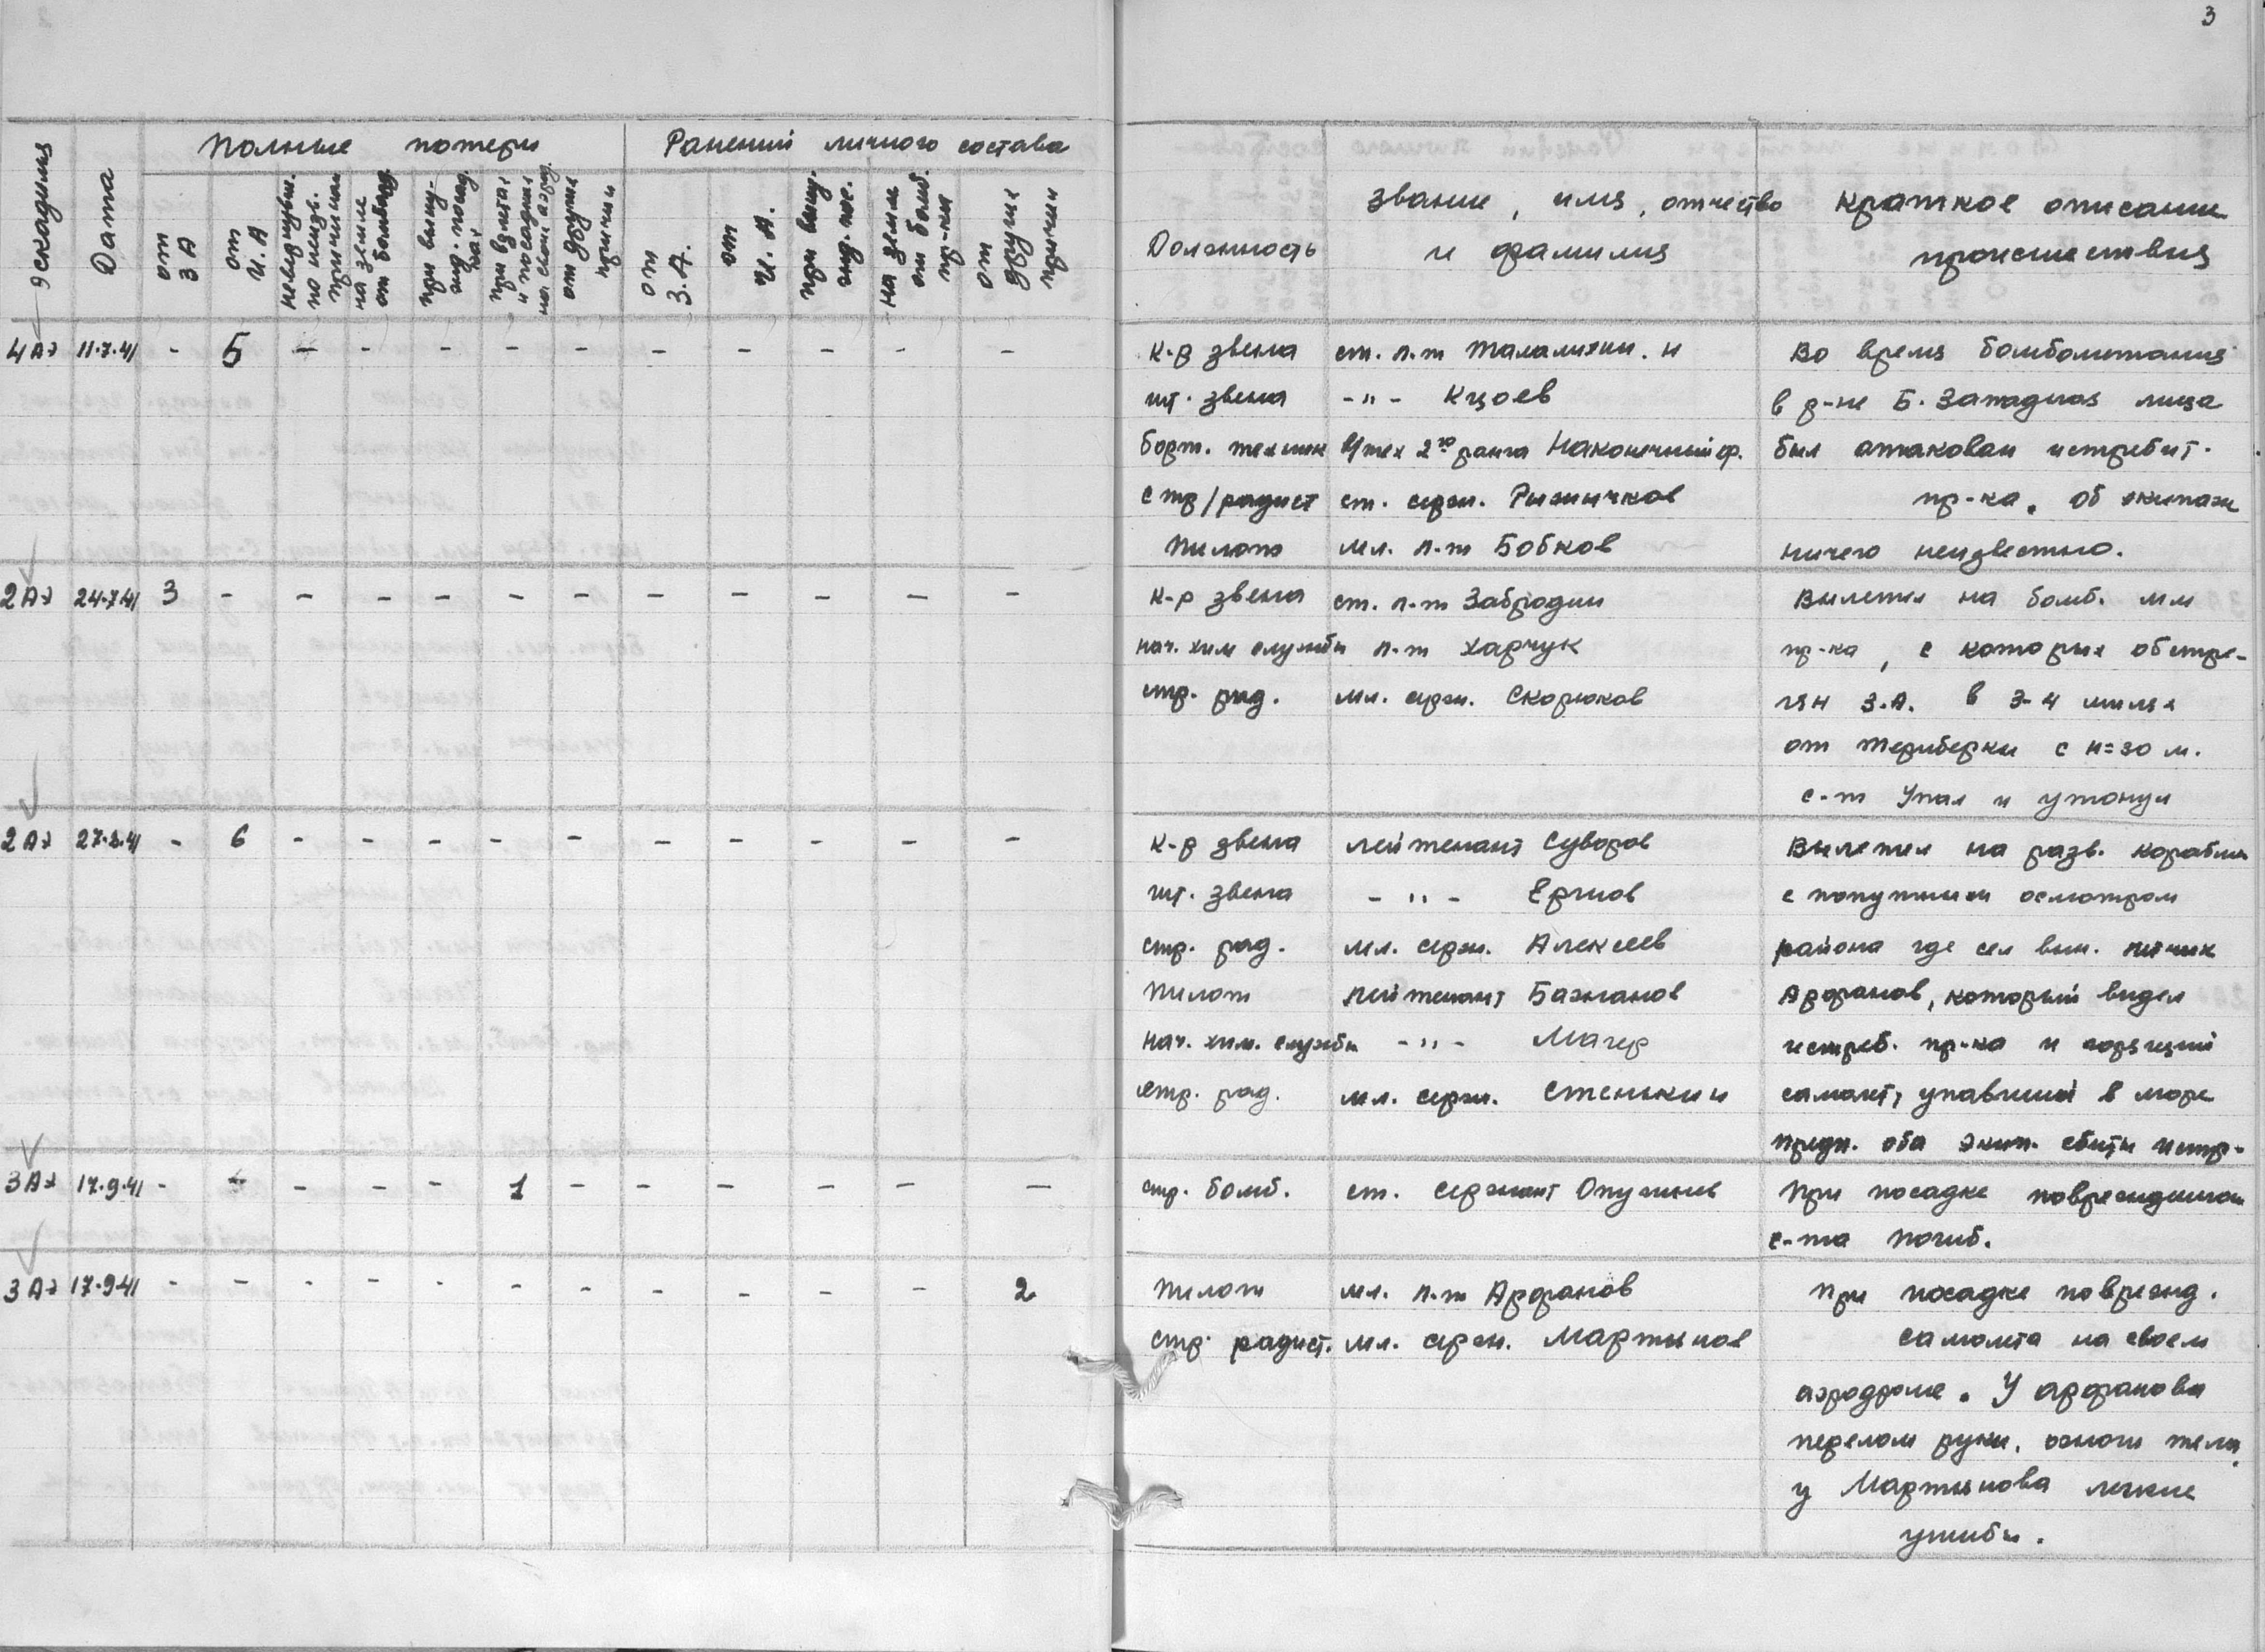 3
Полные потери
Ранений личного состава
эскадрилия
Дата
от З А
от И. А
невернувш. по неизв. причинам
на земле от бомбард.
при вынужд. посадках
при взлетах и посадках на своем аэрод.
от других причин
от З.А.
от И. А.
при вынужд. пос.
на земле от бомб. пр-ка
от других причин
Должность
звание, имя, отчество и фамилия
краткое описание происшествия
4 АЭ 11.7.41 - 5 - - - - - - - - - -
к-р звена ст. л-т Талалихин. Н Во время бомбометания
шт. звена -"- Кцоев в р-не Б. Западная лица
борт. техник в/тех 2го ранга Наконечный ф. был атакован истребит.
стр/радист ст. серж. Рыжичков пр-ка. Об экипаже
пилот мл. л-т Бобков ничего неизвестно.
2 АЭ 24.7.41 3 - - - - - - - - - - -
к-р звена ст. л-т Забродин Вылетел на бомб. мм
нач. хим службы л-т Харчук пр-ка, с которых обстре-
стр. рад. мл. серж. Скорюков лян З.А. в 3-4 милях
от Териберки с н=30 м.
с-т Упал и утонул
2 АЭ 27.8.41 - 6 - - - - - - - - - -
к-р звена лейтенант Суворов Вылетел на разв. корабля
шт. звена -"- Ершов с попутным осмотром
стр. рад. мл. серж. Алексеев района где сел вын. летчик
пилот лейтенант Бажанов Арфанов, который видел
нач. хим. службы -"- Магер истреб. пр-ка и горящий
стр. рад. мл. серж. Стенькин самолет, упавший в море
предп. оба экип. сбиты истр-
3 АЭ 17.9.41 - - - - - 1 - - - - - -
стр. бомб. ст. сержант При посадке поврежденного
с-та погиб.
3 АЭ 17.9.41 - - - - - - - - - - - 2
пилот мл. л-т Арфанов при посадке поврежд.
стр. радист. мл. серж. Мартынов самолета на своем
аэродроме. У арфанова
перелом руки, ожоги тела,
у Мартынова легкие
ушибы.